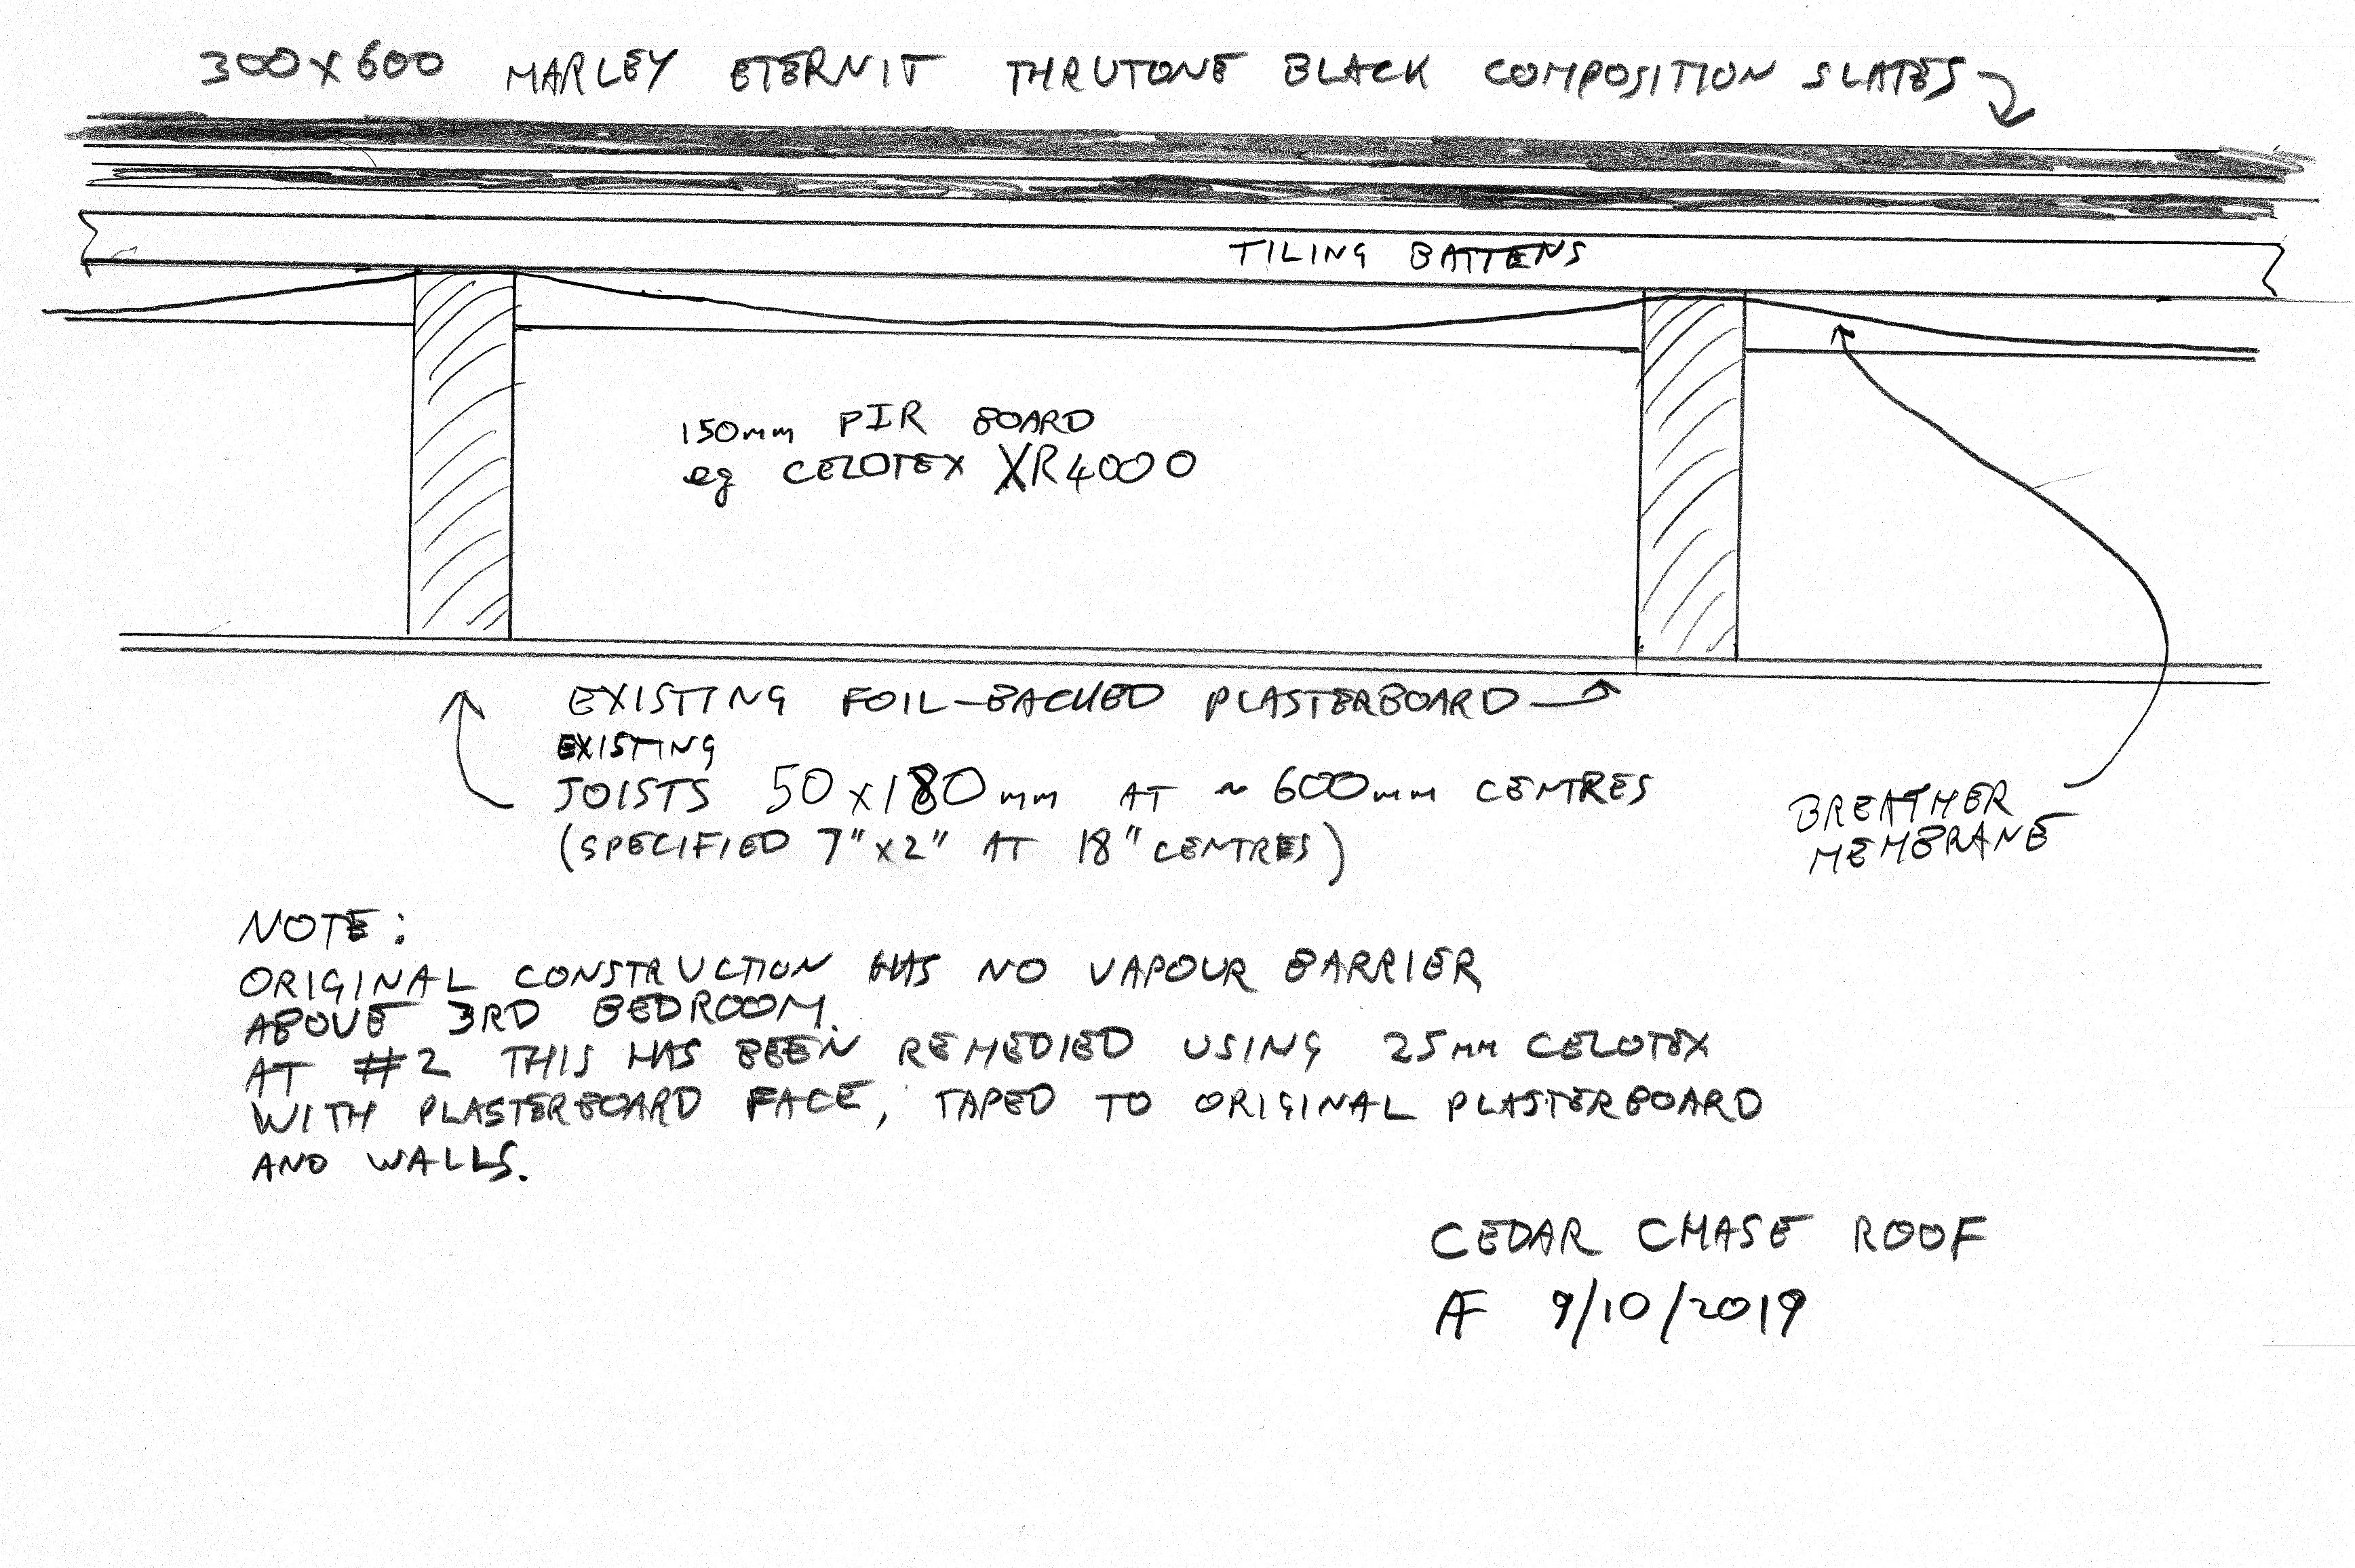 300X600 MARLEY ETERNIT THRUTONE BLACK COMPOSITION SLATES
TILING BATTENS
150mm PIR BOARD
eg CELOTEX XR4000
EXISTING FOIL-BACKED PLASTERBOARD
EXISTING
JOISTS 50x180mm AT ~ 600mm CENTRES
(SPECIFIED 7"x2" AT 18" CENTRES)
BREATHER
MEMBRANE
NOTE:
ORIGINAL CONSTRUCTION HAS NO VAPOUR BARRIER
ABOVE 3RD BEDROOM.
AT #2 THIS HAS BEEN REMEDIED USING 25mm CELOTEX
WITH PLASTERBOARD FACE, TAPED TO ORIGINAL PLASTERBOARD
AND WALLS.
CEDAR CHASE ROOF
AF 9/10/2019